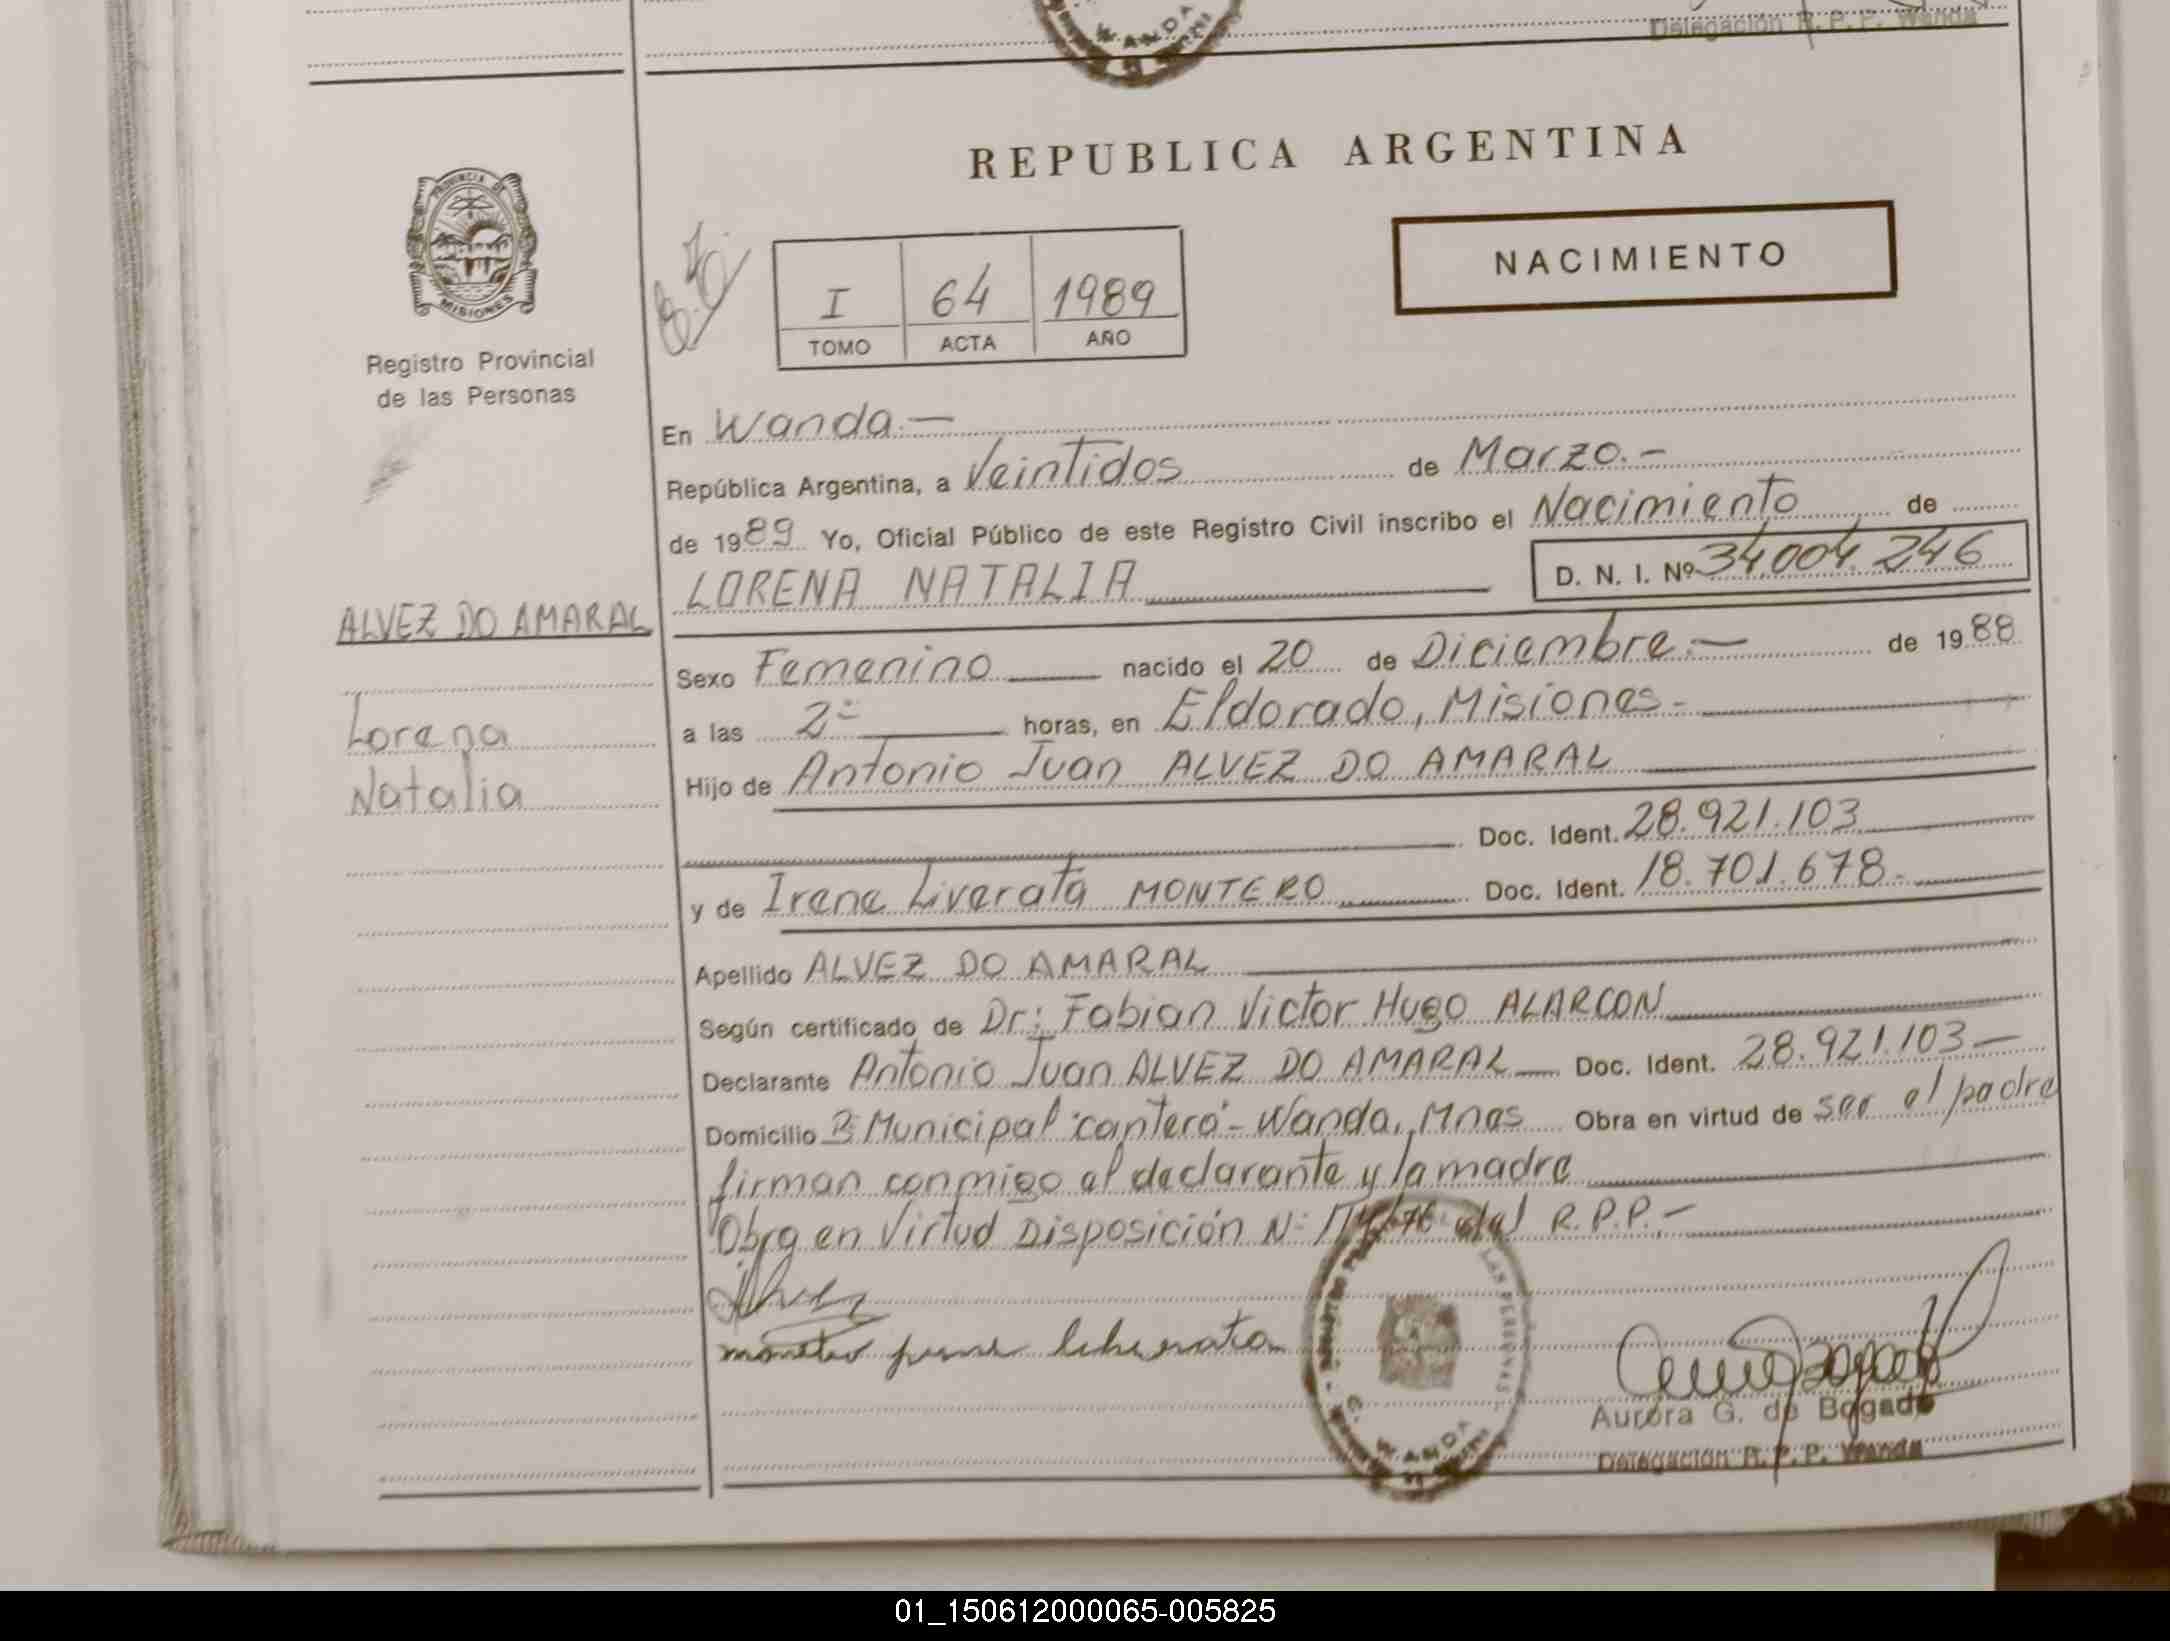 WANDA
Delegación R. P. P. Wanda
REPUBLICA ARGENTINA
PROVINCIA DE
MISIONES
Registro Provincial
de las Personas
NACIMIENTO
I 64 1989
TOMO ACTA AÑO
En Wanda.—
República Argentina, a Veintidos de Marzo.-
de 1989 Yo, Oficial Público de este Registro Civil inscribo el Nacimiento de
LORENA NATALIA D. N. I. Nº 34.004.246
ALVEZ DO AMARAL
Lorena
Natalia
Sexo Femenino nacido el 20 de Diciembre.— de 1988
a las 2.- horas, en Eldorado, Misiones.-
Hijo de Antonio Juan ALVEZ DO AMARAL
Doc. Ident. 28.921.103
y de Irene Liverata MONTERO Doc. Ident. 18.701.678.-
Apellido ALVEZ DO AMARAL
Según certificado de Dr: Fabian Victor Hugo ALARCON
Declarante Antonio Juan ALVEZ DO AMARAL Doc. Ident. 28.921.103—
Domicilio Bº Municipal "cantera"- Wanda, Mnes Obra en virtud de ser el padre
firman conmigo el declarante y la madre
Obra en Virtud Disposición Nº /76 del R.P.P.-
liberata
LAS PERSONAS
WANDA
Aurora G. de Bogado
Delegación R. P. P. Wanda
01_150612000065-005825